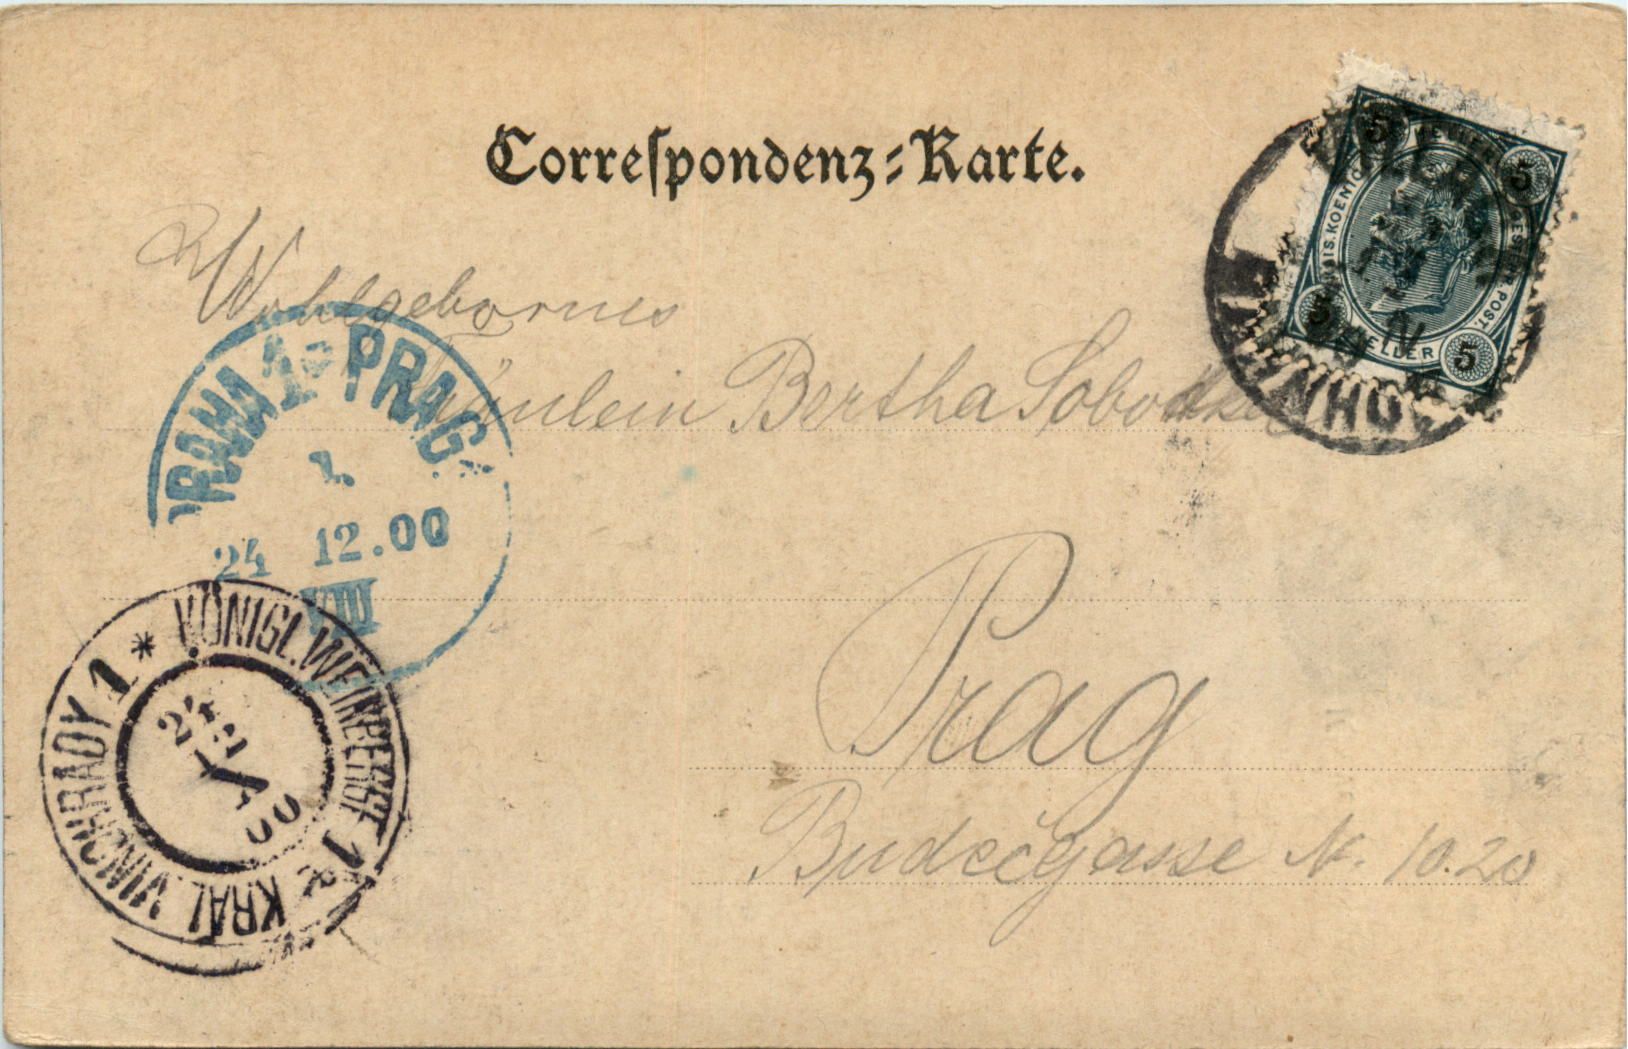 Correspondenz-Karte.
Wohlgebornes
Fräulein Bertha Sobotka
Prag
Budečgasse N. 10.20
PRAHA 1 PRAG
1.
24 12.00
VIII
KÖNIGL. WEINBERGE 1
KRÁL. VINOHRADY 1
24
00
VILLACH
BAHNHOF
5 HELLER 5
KAIS. KOENIGL. OESTERR. POST.
5 HELLER 5